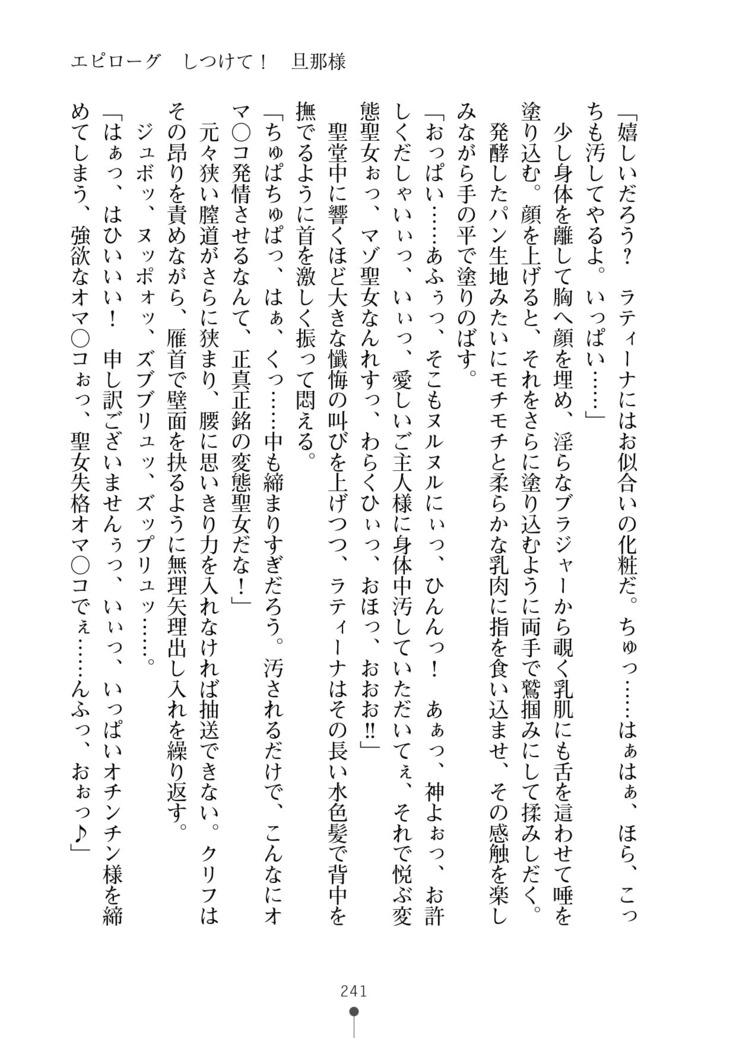 エピローグ　しつけて！　旦那様
「嬉しいだろう？　ラティーナにはお似合いの化粧だ。ちゅっ……はぁはぁ、ほら、こっ
ちも汚してやるよ。いっぱい……」
　少し身体を離して胸へ顔を埋め、淫らなブラジャーから覗く乳肌にも舌を這わせて唾を
塗り込む。顔を上げると、それをさらに塗り込むように両手で鷲掴みにして揉みしだく。
　発酵したパン生地みたいにモチモチと柔らかな乳肉に指を食い込ませ、その感触を楽し
みながら手の平で塗りのばす。
「おっぱい……あふぅっ、そこもヌルヌルにぃっ、ひんんっ！　あぁっ、神よぉっ、お許
しくだしゃいぃっ、いぃっ、愛しいご主人様に身体中汚していただいてぇ、それで悦ぶ変
態聖女ぉっ、マゾ聖女なんれすっ、わらくひぃっ、おほっ、おおお‼」
　聖堂中に響くほど大きな懺悔の叫びを上げつつ、ラティーナはその長い水色髪で背中を
撫でるように首を激しく振って悶える。
「ちゅぱちゅぱっ、はぁ、くっ……中も締まりすぎだろう。汚されるだけで、こんなにオ
マ〇コ発情させるなんて、正真正銘の変態聖女だな！」
　元々狭い膣道がさらに狭まり、腰に思いきり力を入れなければ抽送できない。クリフは
その昂りを責めながら、雁首で壁面を抉るように無理矢理出し入れを繰り返す。
　ジュボッ、ヌッポォッ、ズブブリュッ、ズップリュッ……。
「はぁっ、はひいいい！　申し訳ございませんぅっ、いぃっ、いっぱいオチンチン様を締
めてしまう、強欲なオマ〇コぉっ、聖女失格オマ〇コでぇ……んふっ、おぉっ♪」
241